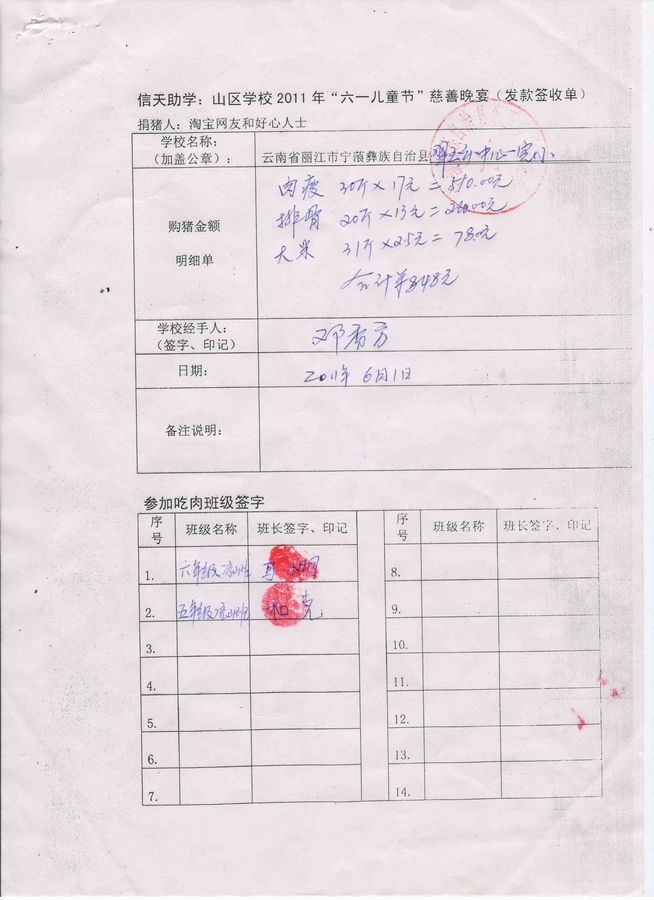 信天助学：山区学校 2011 年“六一儿童节”慈善晚宴（发款签收单）
捐猪人：淘宝网友和好心人士
学校名称：
（加盖公章）：
云南省丽江市宁蒗彝族自治县
购猪金额
明细单
肉瘦 30斤×17元=510.00元
排骨 20斤×13元=260.00元
大米 31斤×2.5元=78.0元
合计￥848元
学校经手人：
（签字、印记）
邓秀方
日期：
2011年 6月1日
备注说明：
参加吃肉班级签字
序号 班级名称 班长签字、印记 序号 班级名称 班长签字、印记
1. 六年级凉山班 8.
2. 五年级凉山班 和克 9.
3. 10.
4. 11.
5. 12.
6. 13.
7. 14.